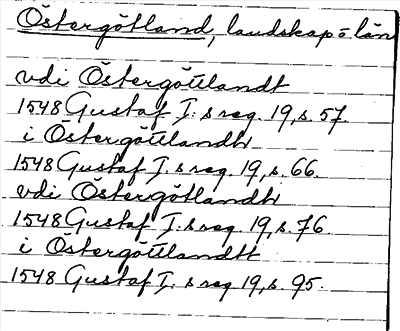 Östergötland, landskap o län
vdi Östergöttlandt
1548 Gustaf I:s reg. 19, s. 57
i Östergöttlandh
1548 Gustaf I:s reg. 19, s. 66.
vdi Östergötlandh
1548 Gustaf I:s reg. 19, s. 76
i Östergöttlandtt
1548 Gustaf I:s reg 19, s. 95.